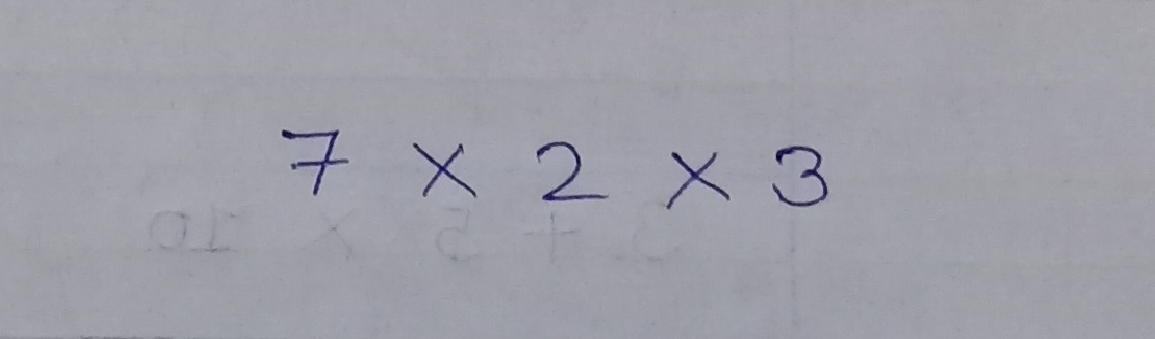 7 × 2 × 3